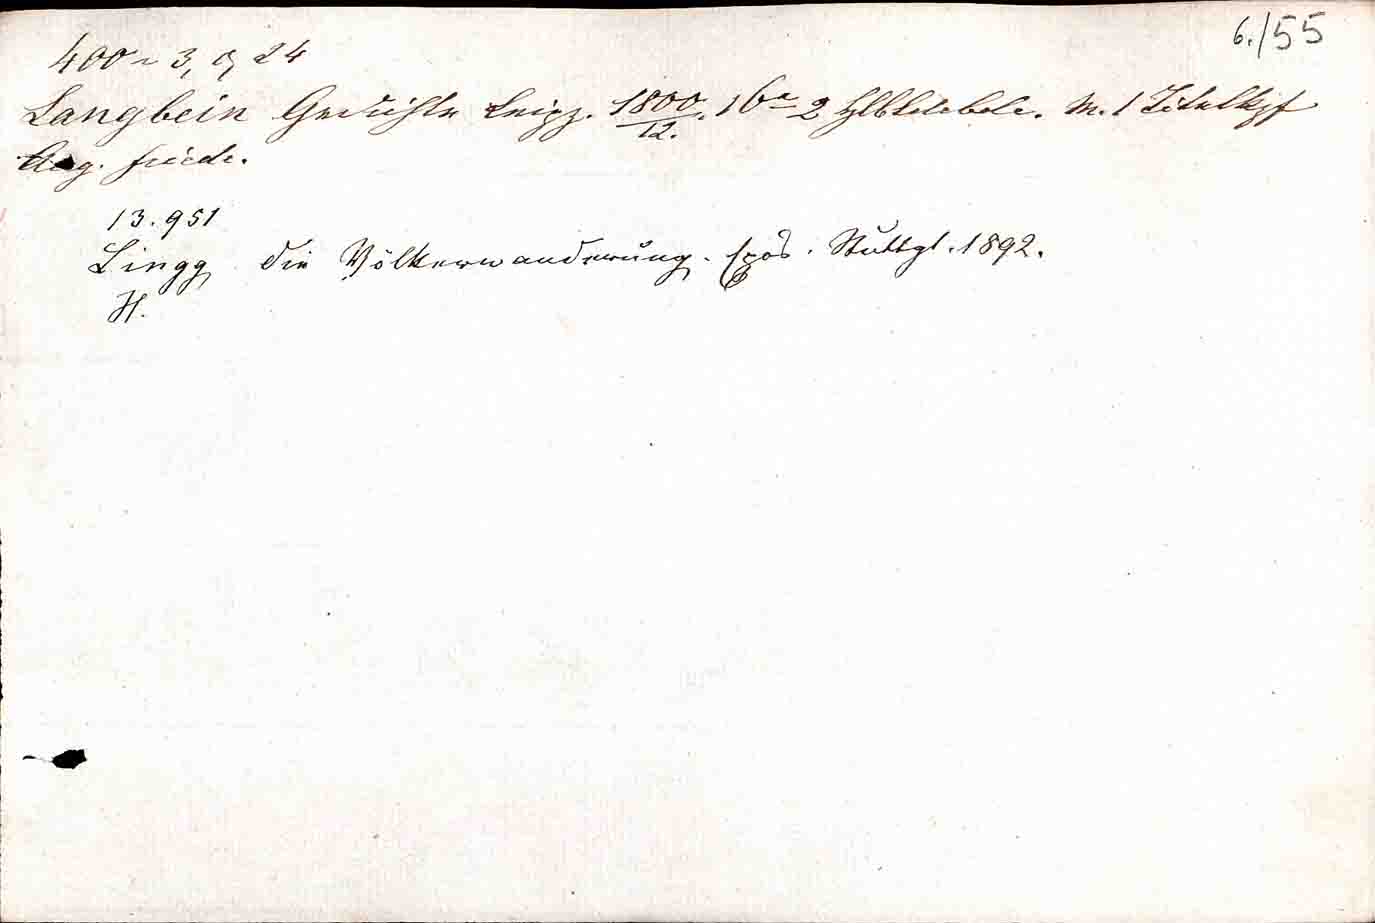 6./55
400 ~ 3, 9, 24
Langbein Gedichte Leipz. 1800/12. 16° 2 Hlbldrbde. M. 1 Titelkpf
Aug. Friedr.
13.951
Lingg die Völkerwanderung. Epos. Stuttgt. 1892.
H.